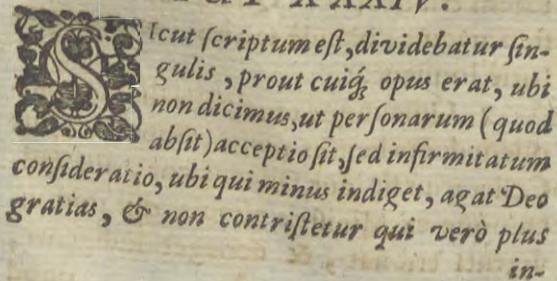 SIcut ſcriptum eſt, dividebatur ſin-
gulis, prout cuiq́ꝫ opus erat, ubi
non dicimus, ut perſonarum (quod
abſit) acceptio ſit, ſed infirmitatum
conſideratio, ubi qui minus indiget, agat Deo
gratias, & non contriſtetur qui verò plus
in-